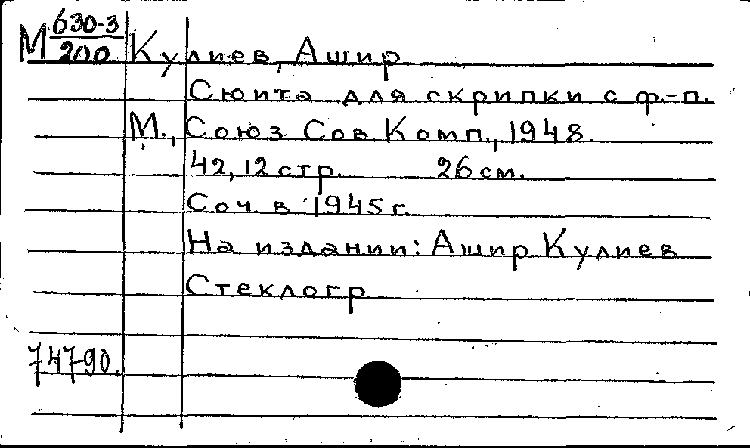 М 630-3/200 Кулиев, Ашир
Сюита для скрипки с ф.-п.
М., Союз Сов Комп., 1948.
42, 12 стр. 26 см.
Соч в 1945 г.
На издании: Ашир Кулиев
Стеклогр
747-90.